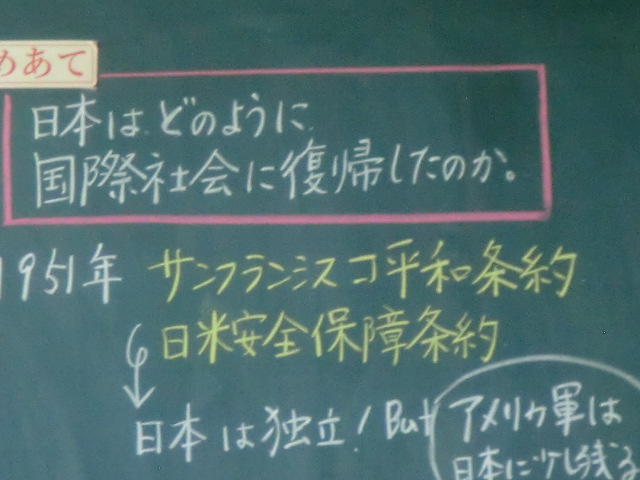 めあて
日本はどのように
国際社会に復帰したのか。
1951年 サンフランシスコ平和条約
日米安全保障条約
日本は独立!But アメリカ軍は
日本に少し残る